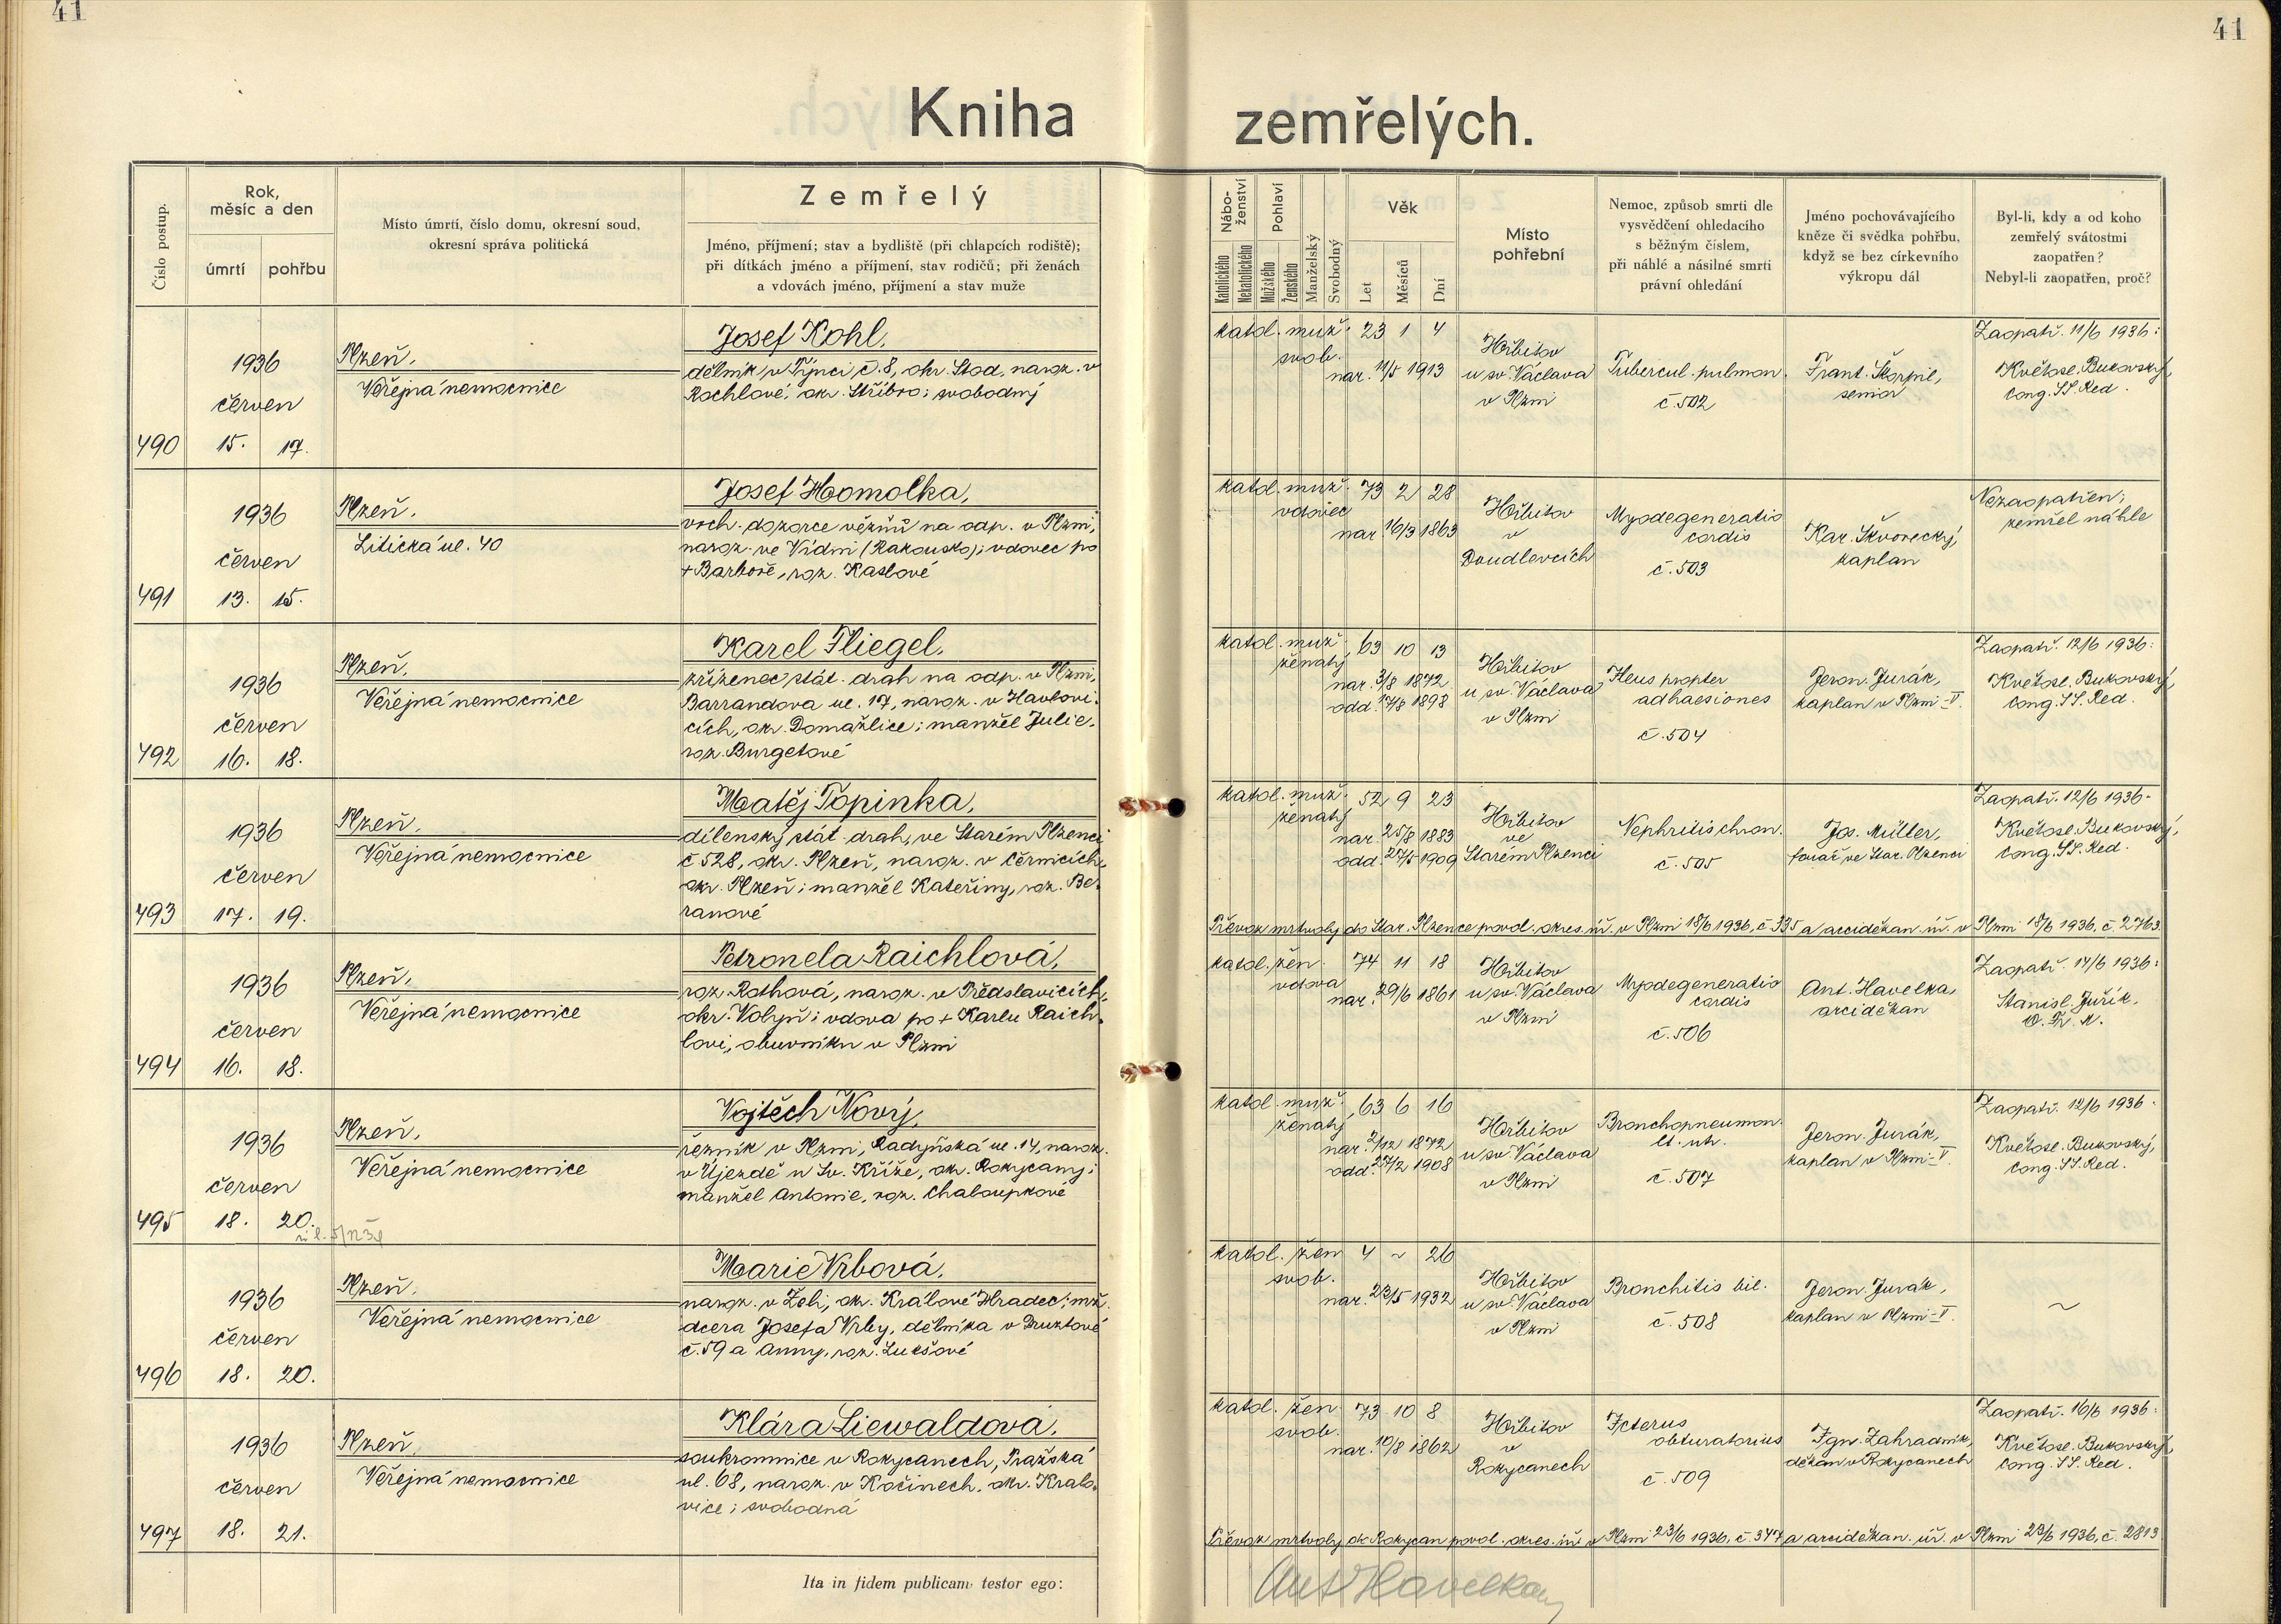 41
41
Kniha
zemřelých.
Číslo postup.
Rok,
měsíc a den
úmrtí
pohřbu
Místo úmrtí, číslo domu, okresní soud,
okresní správa politická
Zemřelý
Jméno, příjmení; stav a bydliště (při chlapcích rodiště);
při dítkách jméno a příjmení, stav rodičů; při ženách
a vdovách jméno, příjmení a stav muže
Nábo-
ženství
Katolického
Nekatolického
Pohlaví
Mužského
Ženského
Manželský
Svobodný
Věk
Let
Měsíců
Dní
Místo
pohřební
Nemoc, způsob smrti dle
vysvědčení ohledacího
s běžným číslem,
při náhlé a násilné smrti
právní ohledání
Jméno pochovávajícího
kněze či svědka pohřbu,
když se bez církevního
výkropu dál
Byl-li, kdy a od koho
zemřelý svátostmi
zaopatřen?
Nebyl-li zaopatřen, proč?
490
1936
červen
15. 17.
Plzeň.
Veřejná nemocnice
Josef Kohl,
dělník v Týnci č. 8, okr. Stod, naroz. v
Rochlově, okr. Stříbro; svobodný
katol. muž. 23 1 4
svob.
nar. 11/5 1913
Hřbitov
u sv. Václava
v Plzni
Tubercul. pulmon.
č. 502
Frant. Škorpil,
senior
Zaopatř. 11/6 1936:
Květosl. Bukovský,
Cong. SS. Red.
491
1936
červen
13. 15.
Plzeň.
Litická ul. 40
Josef Homolka,
vrch. dozorce vězňů na odp. v Plzni,
naroz. ve Vídni (Rakousko); vdovec po
+ Barboře, roz. Kaslové
katol. muž. 73 2 28
vdovec
nar. 16/3 1863
Hřbitov
v
Doudlevcích
Myodegeneratio
cordis
č. 503
Kar. Škvorecký,
kaplan
Nezaopatřen;
zemřel náhle
492
1936
červen
16. 18.
Plzeň.
Veřejná nemocnice
Karel Fliegel,
zřízenec stát. drah na odp. v Plzni,
Barrandova ul. 17, naroz. v Havlovi-
cích, okr. Domažlice; manžel Julie,
roz. Burgetové
katol. muž. 63 10 13
ženatý
nar. 3/8 1872
odd. 1898
Hřbitov
u sv. Václava
v Plzni
Ileus propter
adhaesiones
č. 504
Jeron. Jurák,
kaplan v Plzni-V.
Zaopatř. 12/6 1936:
Květosl. Bukovský,
Cong. SS. Red.
493
1936
červen
17. 19.
Plzeň.
Veřejná nemocnice
Matěj Topinka,
dílenský stát. drah, ve Starém Plzenci
č 528, okr. Plzeň, naroz. v Černicích,
okr. Plzeň; manžel Kateřiny, roz. Be-
ranové
katol. muž. 52 9 23
ženatý
nar. 25/8 1883
odd. 1909
Hřbitov
ve
Starém Plzenci
Nephritis chron.
č. 505
Jos. Müller,
farář ve Star. Plzenci
Zaopatř. 12/6 1936:
Květosl. Bukovský,
Cong. SS. Red.
Převoz mrtvoly do Star. Plzence povol. okres. úř. v Plzni 18/6 1936, č 335 a arciděkan. úř. v Plzni 18/6 1936, č. 2763
494
1936
červen
16. 18.
Plzeň.
Veřejná nemocnice
Petronela Raichlová,
roz. Rothová, naroz. v Předslavicích,
okr. Volyň; vdova po + Karlu Raich-
lovi, obuvníku v Plzni
katol. žen. 74 11 18
vdova
nar. 29/6 1861
Hřbitov
u sv. Václava
v Plzni
Myodegeneratio
cordis
č. 506
Ant. Havelka,
arciděkan
Zaopatř. 14/6 1936:
Stanisl. Juřík,
495
1936
červen
18. 20.
Plzeň.
Veřejná nemocnice
Vojtěch Nový,
řezník v Plzni, Radyňská ul. 14, naroz.
v Újezdě u Sv. Kříže, okr. Rokycany;
manžel Antonie, roz. Chaloupkové
katol. muž. 63 6 16
ženatý
nar. 2/12 1872
odd. 1908
Hřbitov
u sv. Václava
v Plzni
Bronchopneumon.
lt. utr.
č. 507
Jeron. Jurák,
kaplan v Plzni-V.
Zaopatř. 12/6 1936:
Květosl. Bukovský,
Cong. SS. Red.
496
1936
červen
18. 20.
Plzeň.
Veřejná nemocnice
Marie Vrbová,
naroz. v Žehi, okr. Králové Hradec; mž.
dcera Josefa Vrby, dělníka v Druztové
č. 59 a Anny, roz. Lukšové
katol. žen 4 ~ 26
svob.
nar. 23/5 1932
Hřbitov
u sv. Václava
v Plzni
Bronchitis bil.
č. 508
Jeron. Jurák,
kaplan v Plzni-V.
~
497
1936
červen
18. 21.
Plzeň
Veřejná nemocnice
Klára Liewaldová,
soukromnice v Rokycanech, Pražská
ul. 68, naroz. v Kočinech, okr. Kralo-
vice; svobodná
katol. žen. 73 10 8
svob.
nar. 10/8 1862
Hřbitov
v
Rokycanech
Icterus
obturatorius
č. 509
Ign. Zahradník,
děkan v Rokycanech
Zaopatř. 16/6 1936:
Květosl. Bukovský,
Cong. SS. Red.
Převoz mrtvoly do Rokycan povol. okres. úř. v Plzni 23/6 1936, č. 347 a arciděkan. úř. v Plzni 23/6 1936, č. 2813
Ita in fidem publicam testor ego:
Ant Havelka